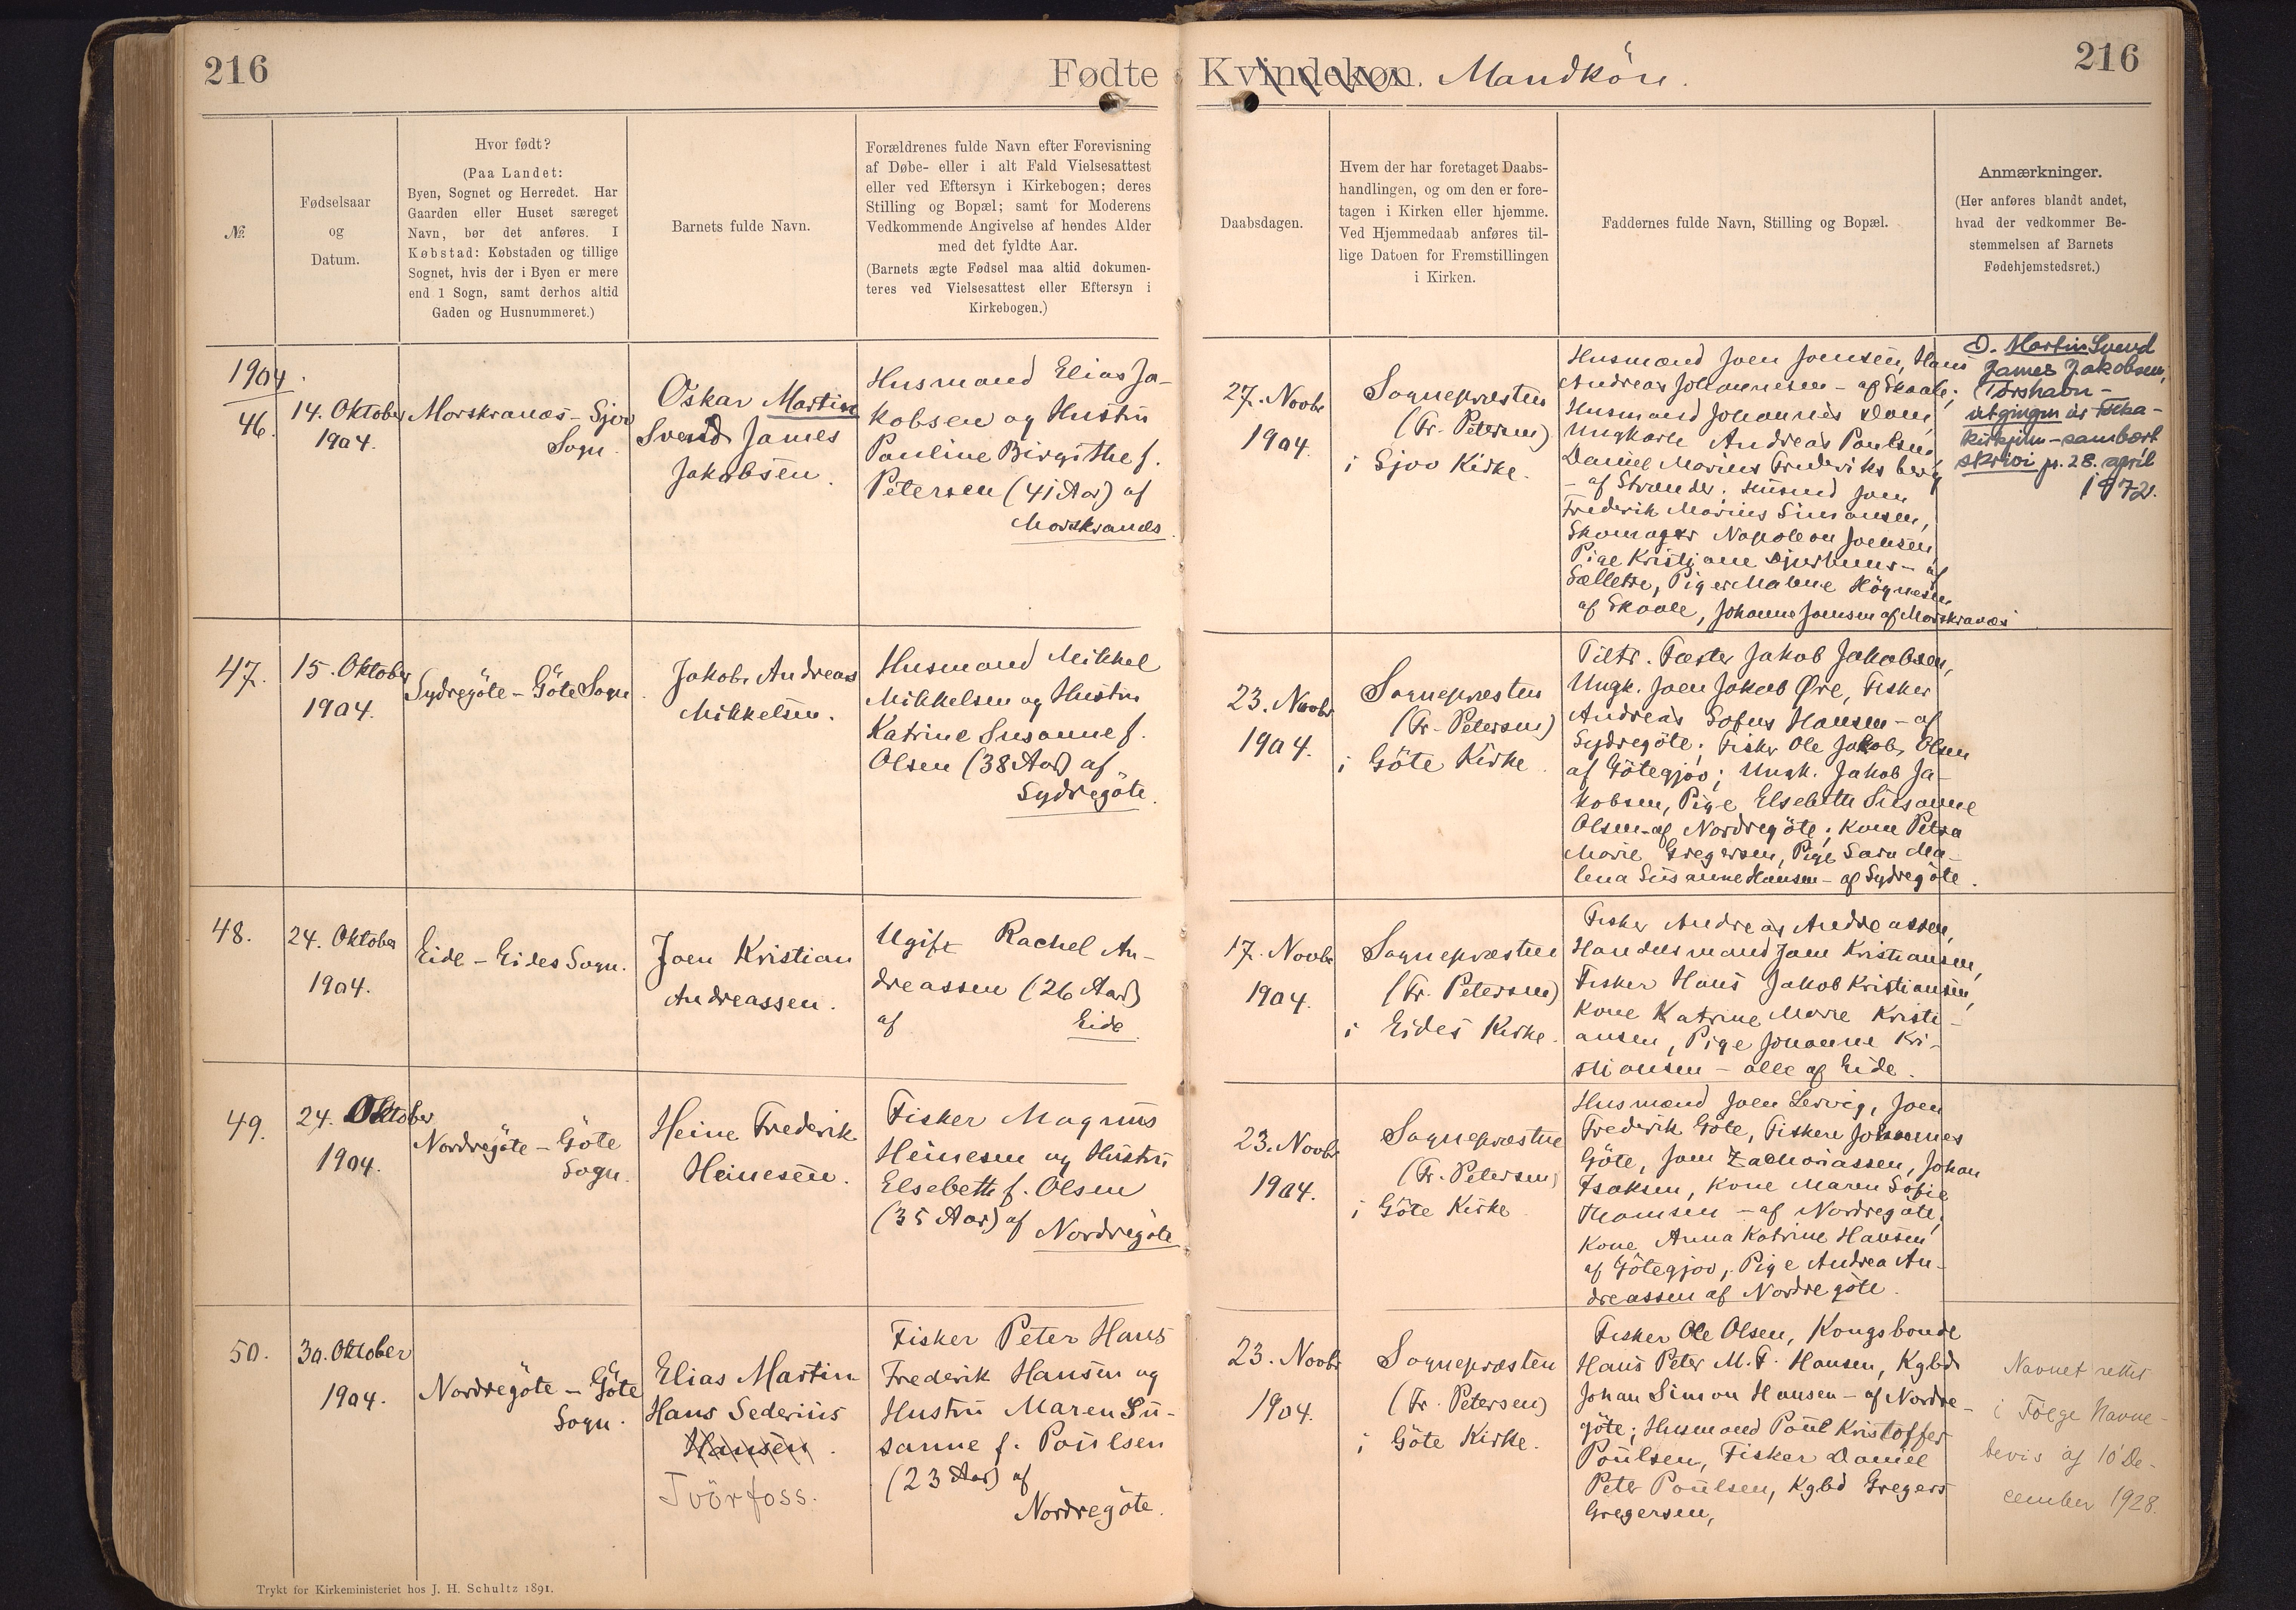 216
Fødte
Kvindekøn. Mandkön.
216
№.
Fødselsaar
og
Datum.
Hvor født?
(Paa Landet:
Byen, Sognet og Herredet. Har
Gaarden eller Huset særeget
Navn, bør det anføres. I
Købstad: Købstaden og tillige
Sognet, hvis der i Byen er mere
end 1 Sogn, samt derhos altid
Gaden og Husnummeret.)
Barnets fulde Navn.
Forældrenes fulde Navn efter Forevisning
af Døbe- eller i alt Fald Vielsesattest
eller ved Eftersyn i Kirkebogen; deres
Stilling og Bopæl; samt for Moderens
Vedkommende Angivelse af hendes Alder
med det fyldte Aar.
(Barnets ægte Fødsel maa altid dokumen-
teres ved Vielsesattest eller Eftersyn i
Kirkebogen.)
Daabsdagen.
Hvem der har foretaget Daabs-
handlingen, og om den er fore-
tagen i Kirken eller hjemme.
Ved Hjemmedaab anføres til-
lige Datoen for Fremstillingen
i Kirken.
Faddernes fulde Navn, Stilling og Bopæl.
Anmærkninger.
(Her anføres blandt andet,
hvad der vedkommer Be-
stemmelsen af Barnets
Fødehjemstedsret.)
1904
46.
14. Oktober
1904.
Morskranæs - Sjov
Sogn.
Oskar Martin
Svend James
Jakobsen.
Husmand Elias Ja-
kobsen og Hustru
Pauline Birgithe f.
Petersen (41 Aar) af
Morskranæs.
27. Novbr
1904.
Sognepræsten
(Fr. Petersen)
i Sjov Kirke.
Husmænd Joen Joensen, Hans
Andreas Johannesen - af Skaale;
Husmand Johannes Dam,
Ungkarle Andreas Poulsen,
Daniel Marius Frederiksberg
- af Strænder; Husmd Joen
Frederik Marius Simonsen,
Skomager Napoleon Joensen,
Pige Kristjane Djurhuus - af
Sellettre, Piger Malene Högnesen
af Skaale, Johanne Joensen af Morskranæs
O. Martin Svend
James Jakobsen,
Torshavn -
útgingin úr Fólka-
kirkjuni - sambært
skrivi pr. 28. april
1972.
47.
15. Oktober
1904.
Sydregöte - Göte Sogn.
Jakob Andreas
Mikkelsen.
Husmand Mikkel
Mikkelsen og Hustru
Katrine Susanne f.
Olsen (38 Aar) af
Sydregöte.
23. Novbr
1904.
Sognepræsten
(Fr. Petersen)
i Göte Kirke.
Tiltr. Fæster Jakob Jakobsen,
Ungk. Joen Jakob Øre, Fisker
Andreas Sofus Hansen - af
Sydregöte; Fisker Ole Jakob Olsen
af Götegjov; Ungk. Jakob Ja-
kobsen, Pige Elsebeth Susanne
Olsen - af Nordregöte; Kone Petra
Marie Gregersen, Pige Sara Ma-
lena Susanne Hansen - af Sydregöte.
48.
24. Oktober
1904.
Eide - Eides Sogn.
Joen Kristian
Andreassen.
Ugift Rachel An-
dreassen (26 Aar)
af Eide.
17. Novbr
1904.
Sognepræsten
(Fr. Petersen)
i Eides Kirke.
Fisker Andreas Andreassen,
Handelsmand Joen Kristiansen,
Fisker Hans Jakob Kristiansen,
Kone Katrine Marie Kristi-
ansen, Pige Johanne Kri-
stiansen - alle af Eide.
49.
24. Oktober
1904.
Nordregöte - Göte
Sogn.
Heine Frederik
Heinesen.
Fisker Magnus
Heinesen og Hustru
Elsebeth f. Olsen
(35 Aar) af Nordregöte
23. Novbr
1904.
Sognepræsten
(Fr. Petersen)
i Göte Kirke
Husmænd Joen Lervig, Joen
Frederik Göte, Fiskere Johannes
Göte, Joen Zachariassen, Johan
Isaksen, Kone Maren Sofie
Thomsen - af Nordregöte,
Kone Anna Katrine Hansen
af Götegjov, Pige Andrea An-
dreassen af Nordregöte.
50.
30. Oktober
1904.
Nordregöte - Göte
Sogn.
Elias Martin
Hans Sederius
Hansen.
Tvörfoss.
Fisker Peter Hans
Frederik Hansen og
Hustru Maren Su-
sanne f. Poulsen
(23 Aar) af
Nordregöte.
23. Novbr
1904.
Sognepræsten
(Fr. Petersen)
i Göte Kirke.
Fisker Ole Olsen, Kongsbonde
Hans Peter M. F. Hansen, Kgbd
Johan Simon Hansen - af Nordre-
göte; Husmand Poul Kristoffer
Poulsen, Fisker Daniel
Peter Poulsen, Kgbd Gregers
Gregersen,
Navnet rettet
i Følge Navne-
bevis af 10 De-
cember 1928.
Trykt for Kirkeministeriet hos J. H. Schultz 1891.